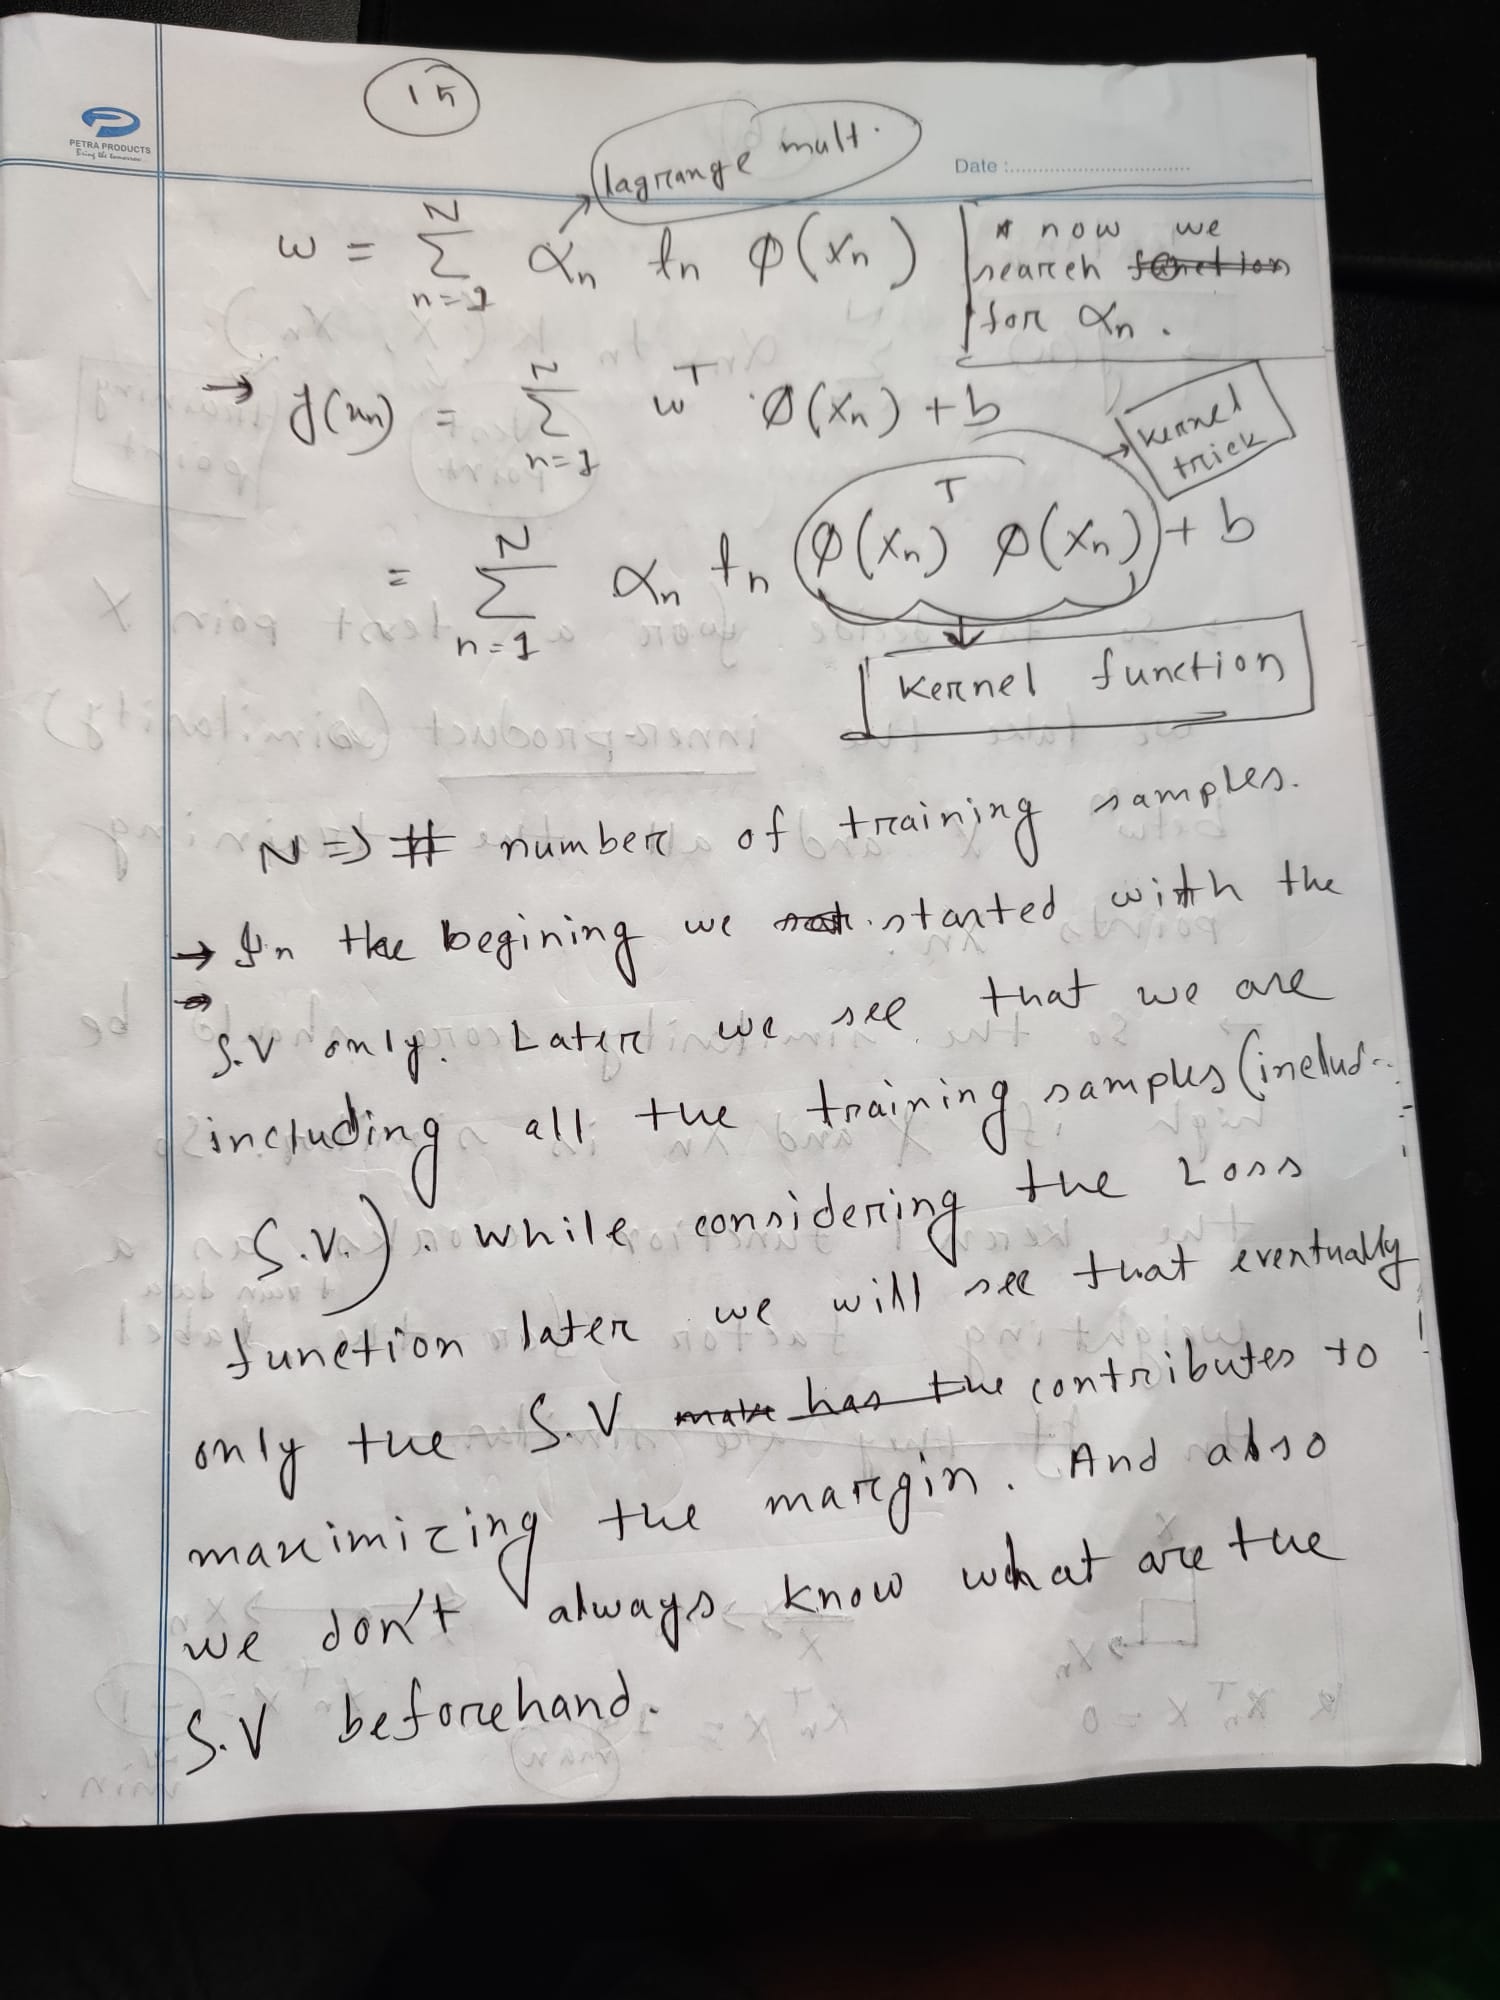 15
PETRA PRODUCTS
Being the tomorrow...
Date :
lagrange mult.
w = N Σ n=1 αn tn φ(xn)
* now we
search function
for αn.
→ y(xn) = N Σ n=1 wT . φ(xn) + b
kernel
trick
= N Σ n=1 αn tn φ(xn)T φ(xn) + b
kernel function
N => # number of training samples.
→ In the begining we started with the
→ S.V only. Later we see that we are
including all the training samples (includ..
S.V.). while considering the Loss
function later we will see that eventually
only the S.V make has the contributes to
maximizing the margin. And also
we don't always know what are the
S.V beforehand.